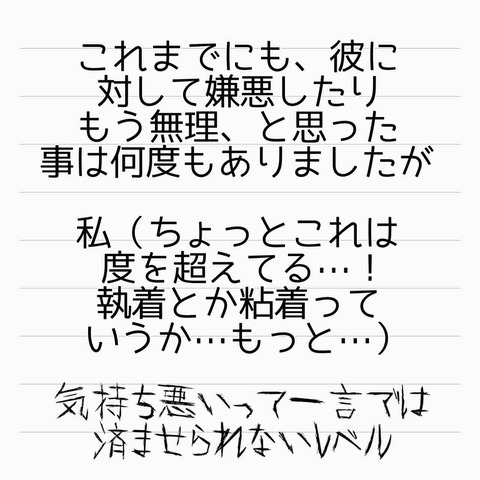 これまでにも、彼に
対して嫌悪したり
もう無理、と思った
事は何度もありましたが
私（ちょっとこれは
度を超えてる…！
執着とか粘着って
いうか…もっと…）
気持ち悪いって一言では
済ませられないレベル